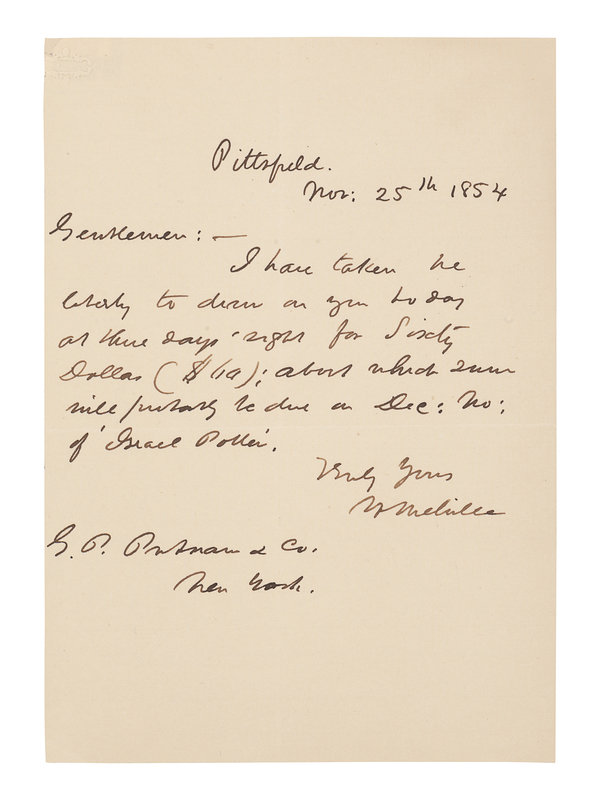 Pittsfield.
Nov: 25th 1854
Gentlemen: —
I have taken the
liberty to draw on you to day
at three days' sight for Sixty
Dollars ($60); about which sum
will probably be due on Dec: No:
of 'Israel Potter'.
Truly Yours
H Melville
G. P. Putnam & Co.
New York.